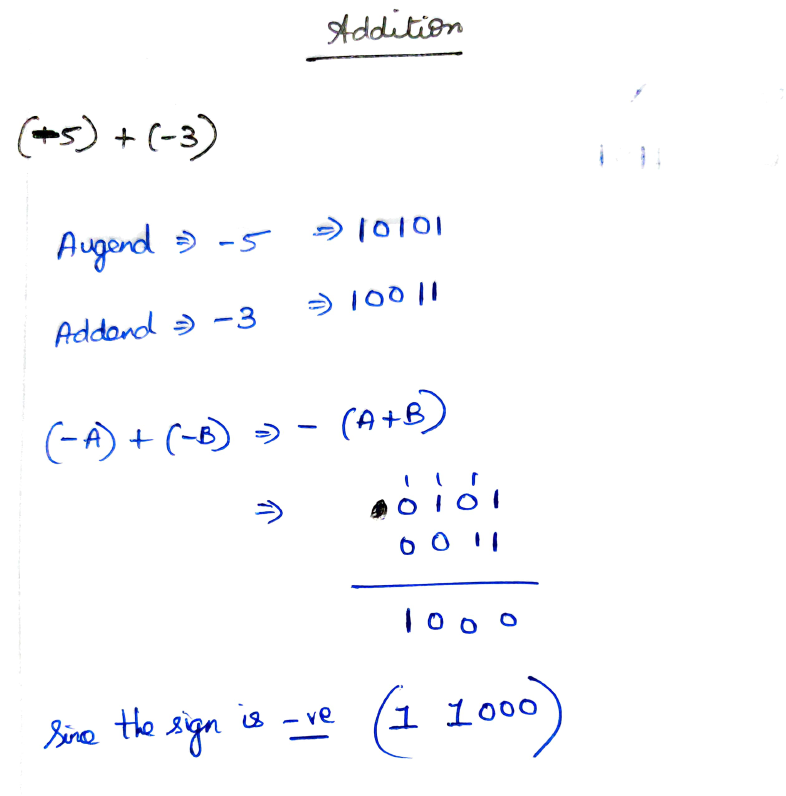 Addition
(+5) + (-3)
Augend ⇒ -5 ⇒ 10101
Addend ⇒ -3 ⇒ 10011
(-A) + (-B) ⇒ - (A+B)
1 1 1
⇒ 0101
0011
1000
Since the sign is -ve (1 1000)